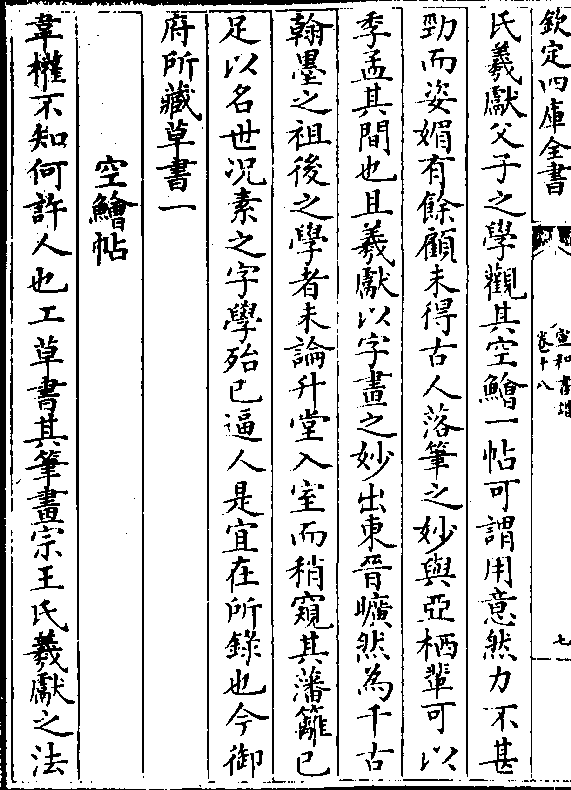 欽定四庫全書
宣和書譜
卷十八
七
氏羲獻父子之學觀其空鱠一帖可謂用意然力不甚
勁而姿媚有餘顧未得古人落筆之妙與亞栖輩可以
季孟其間也且羲獻以字畫之妙出東晉曠然為千古
翰墨之祖後之學者未論升堂入室而稍窺其藩籬已
足以名世況素之字學殆已逼人是宜在所錄也今御
府所藏草書一
空鱠帖
韋權不知何許人也工草書其筆畫宗王氏羲獻之法